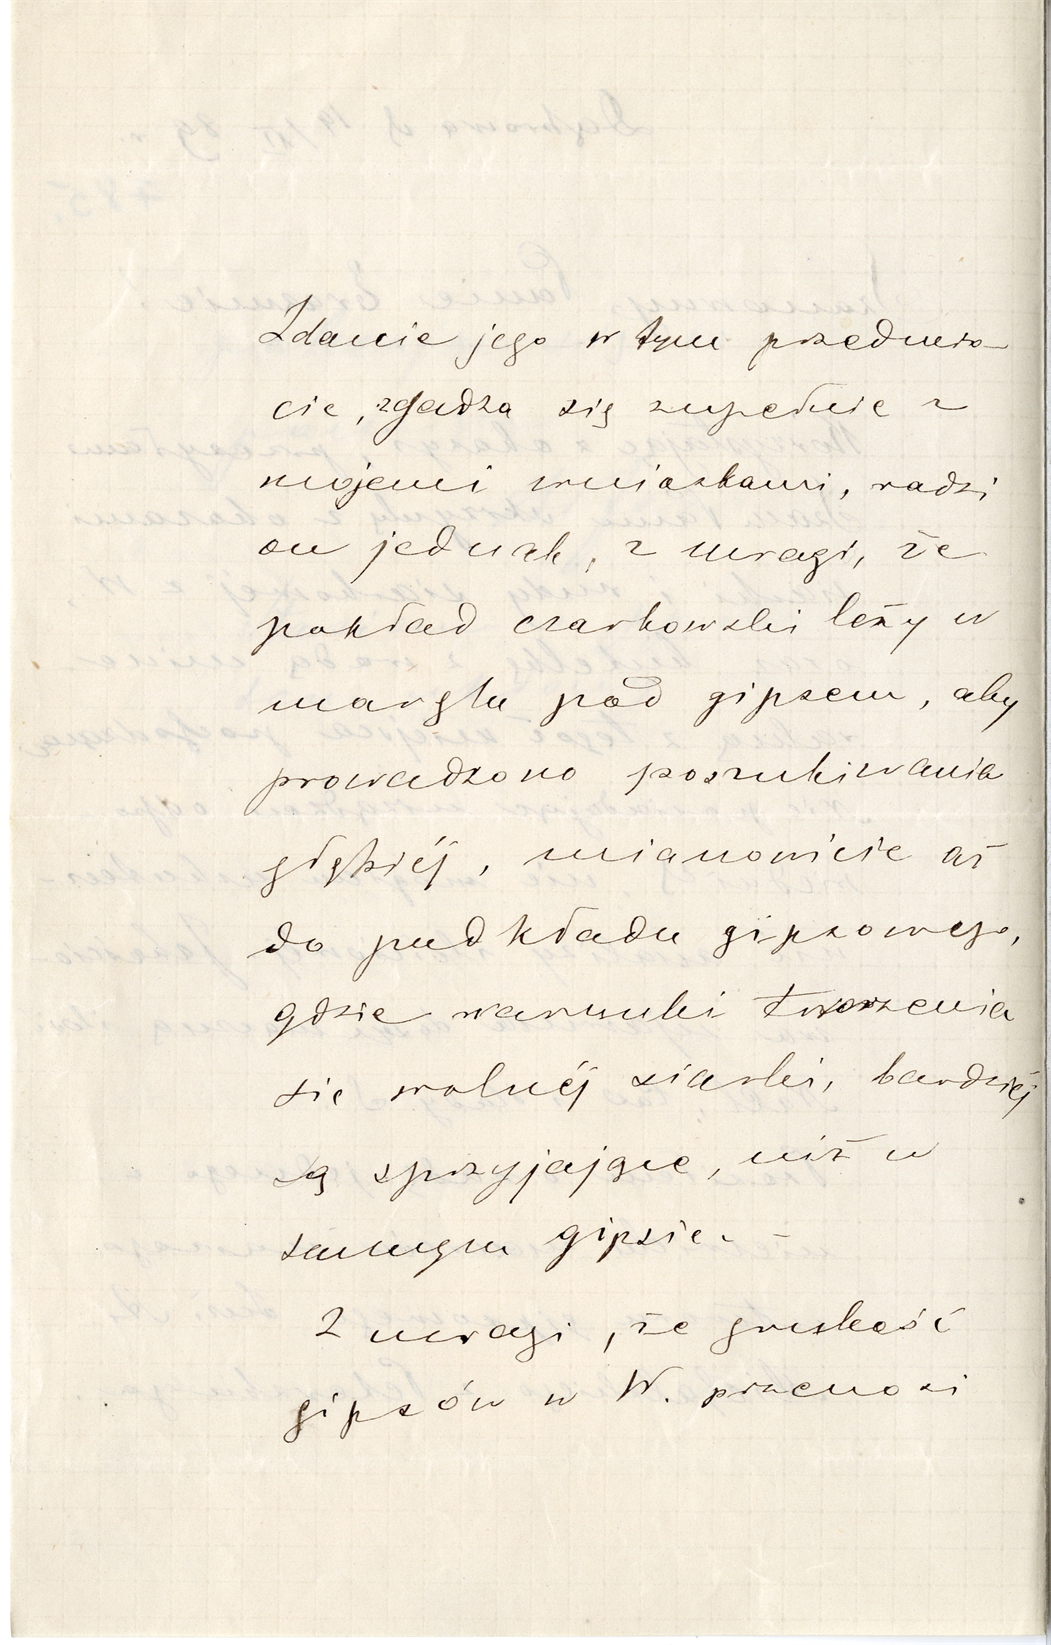 Zdanie jego w tym przedmio-
cie, zgadza się zupełnie z
mojemi wnioskami, radzi
on jednak, z uwagi, że
pokład czarkowski leży w
marglu pod gipsem, aby
prowadzono poszukiwania
głębiéj, mianowicie aż
do podkładu gipsowego,
gdzie warunki tworzenia
się wolnéj siarki, bardziéj
są sprzyjające, niż w
samym gipsie. -
Z uwagi, że grubość
gipsów w W. przenosi